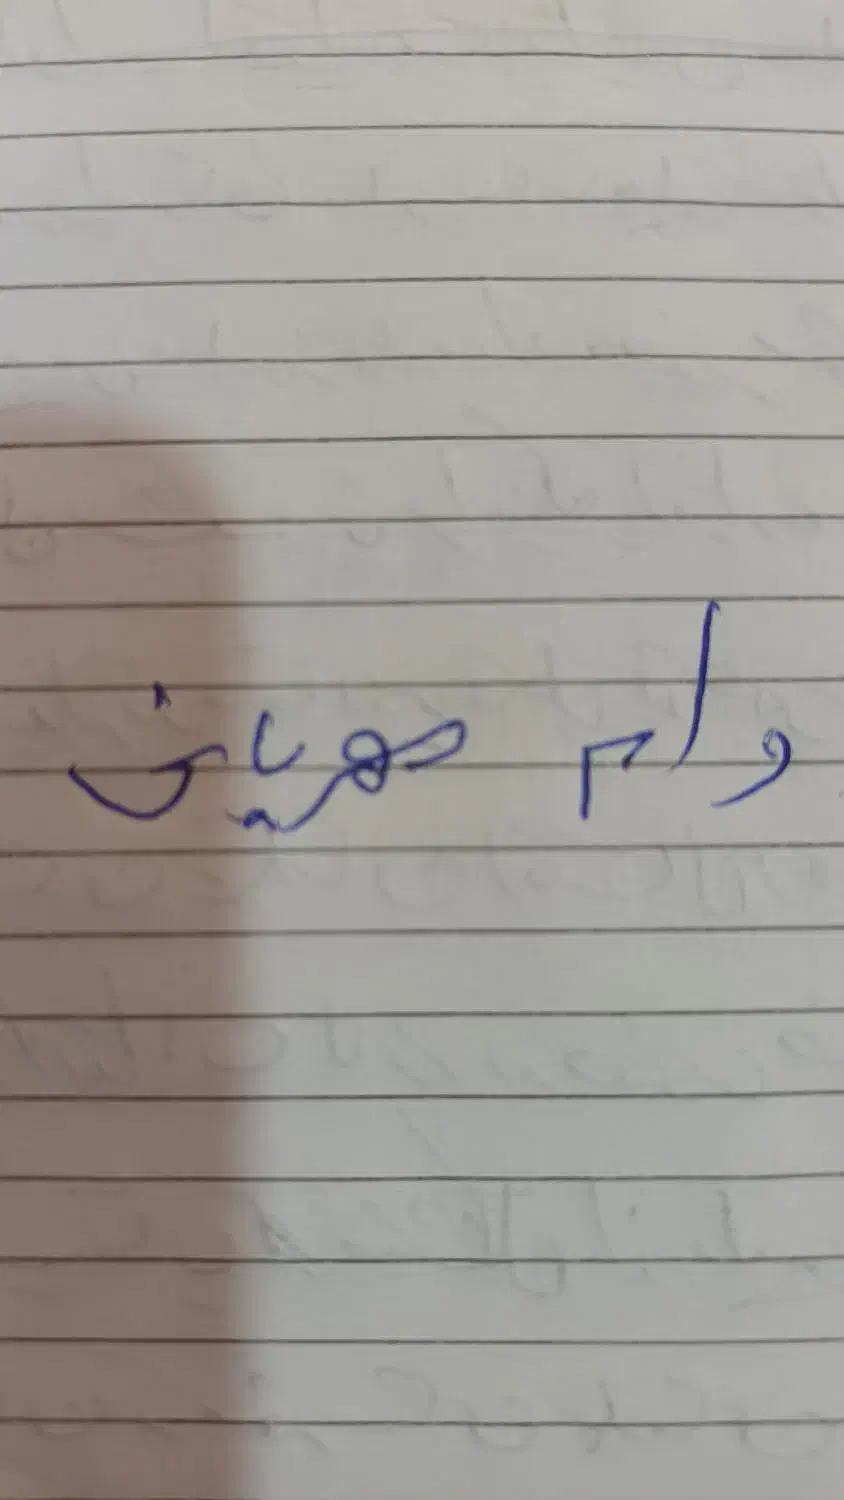 وام مهربانی